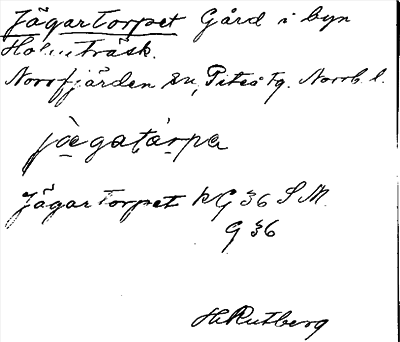 Jägartorpet Gård i byn
Holmträsk.
Norrfjärden sn, Piteå tg. Norrb. l.
jägatårpa
Jägartorpet kG 36 S.M.
G 36
H. Rutberg